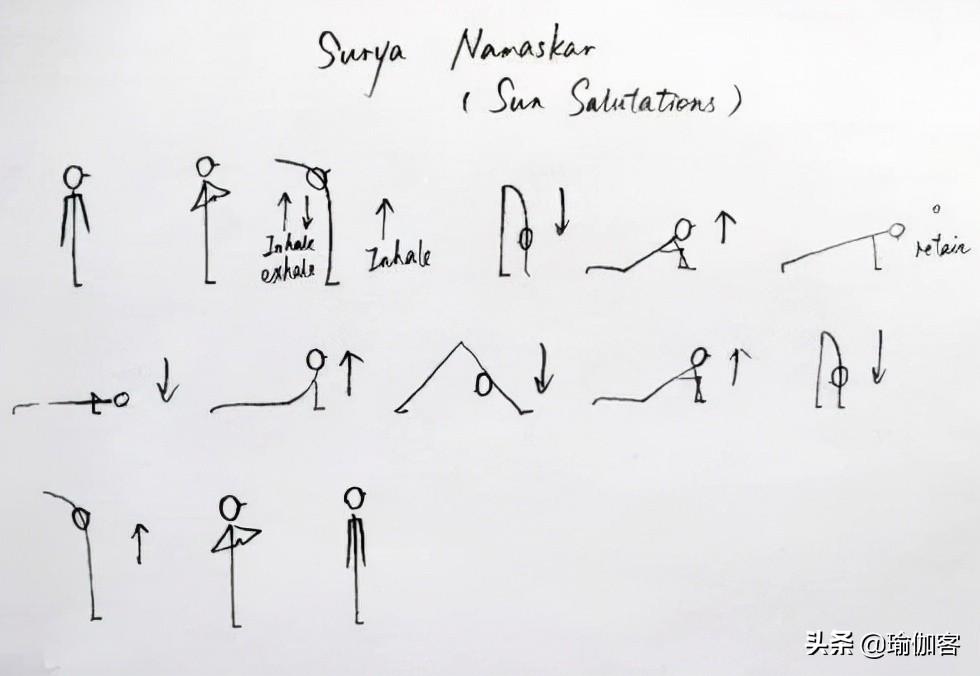 Surya Namaskar
(Sun Salutations)
Inhale
exhale
Inhale
retain
头条 @瑜伽客